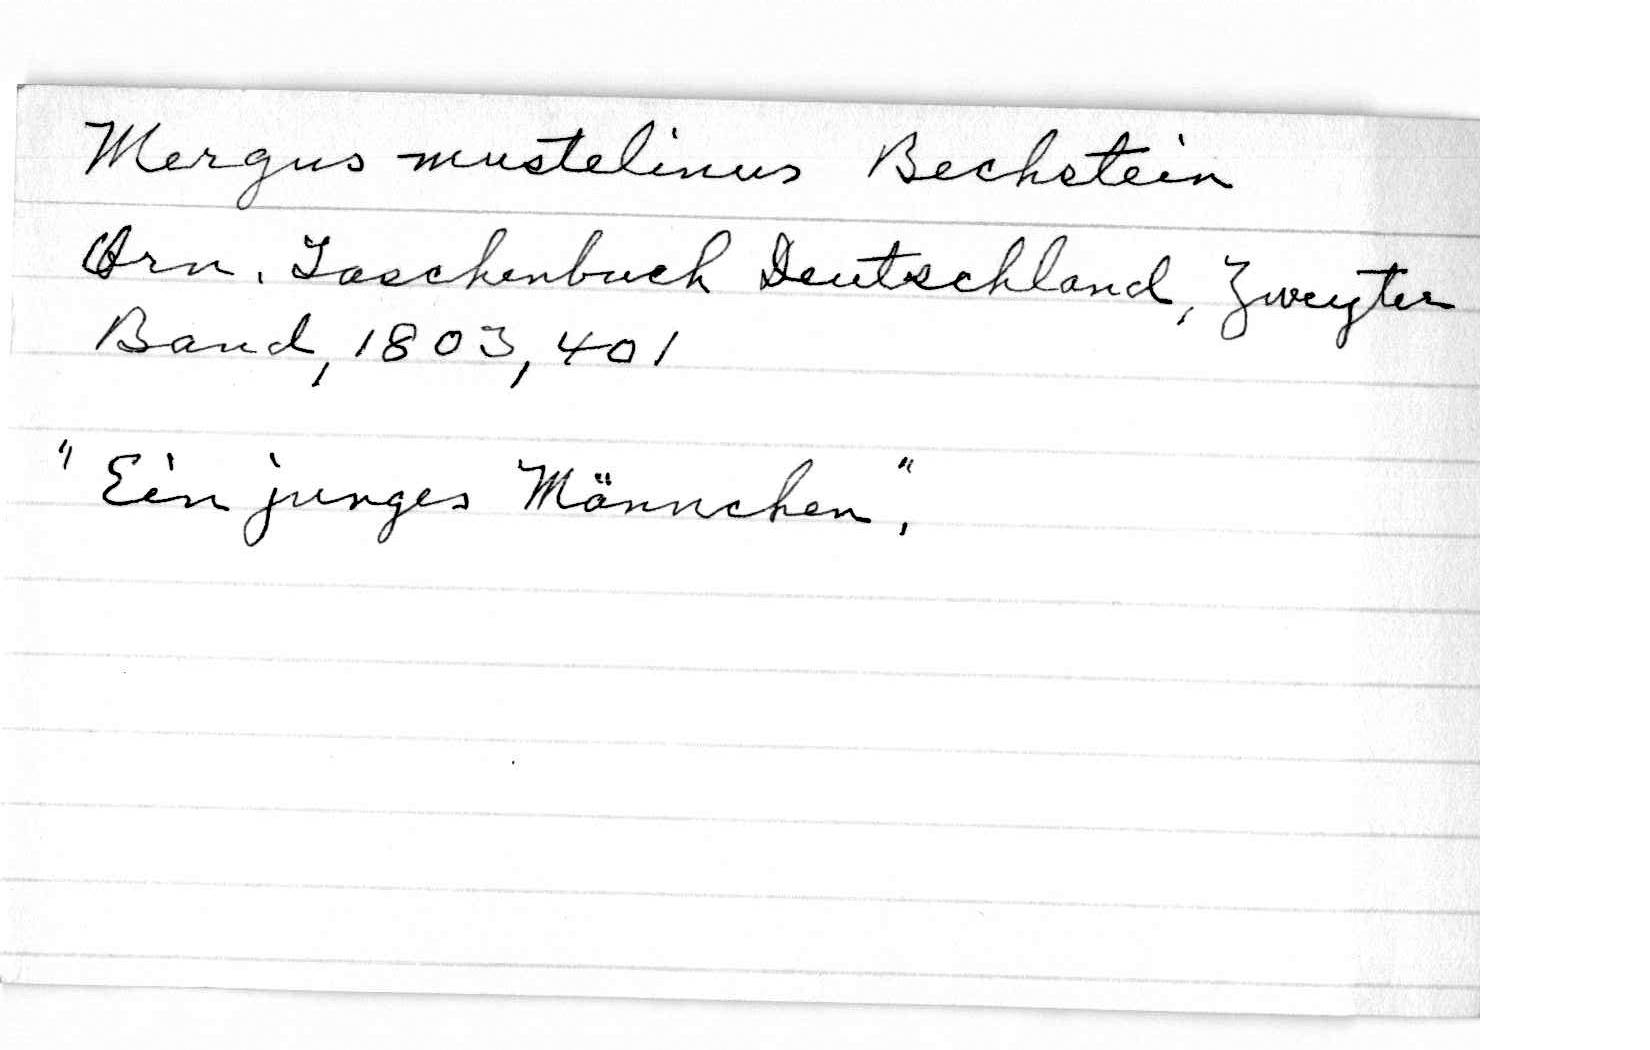 Mergus mustelinus Bechstein
Orn. Taschenbuch Deutschland, Zweyter
Band, 1803, 401
"Ein junges Männchen",